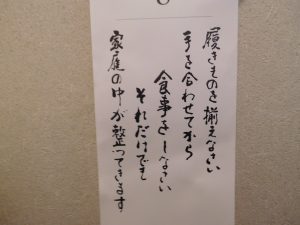 履きものを揃えなさい
手を合わせてから
食事をしなさい
それだけでも
家庭の中が整ってきます